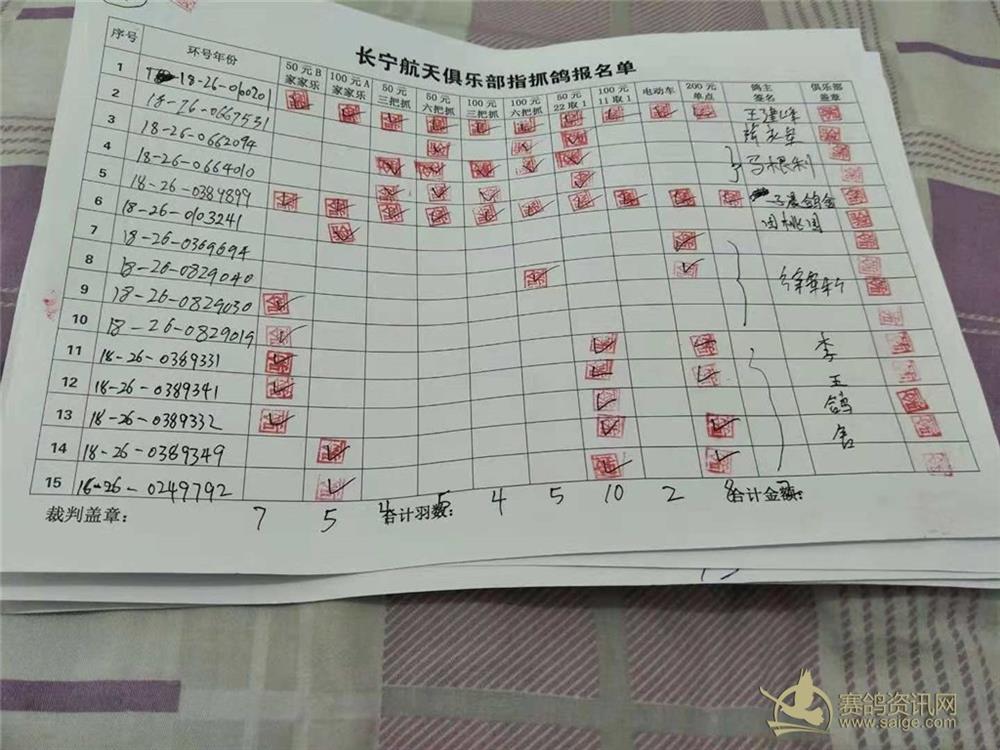 长宁航天俱乐部指抓鸽报名单
序号 环号年份 50元B家家乐 100元A家家乐 50元三把抓 50元六把抓 100元三把抓 100元六把抓 50元22取1 100元11取1 电动车 200元单点 鸽主签名 俱乐部盖章
1 18-26-0100201
2 18-26-0667531
3 18-26-0662094
4 18-26-0664010 马根利
5 18-26-0384899
6 18-26-0103241
7 18-26-0369694
8 18-26-0829040
9 18-26-0829030
10 18-26-0829019
11 18-26-0389331 李
12 18-26-0389341 王
13 18-26-0389332 鸽
14 18-26-0389349 舍
15 18-26-0249792
裁判盖章： 7 5 4 合计羽数： 5 4 5 10 2 8 合计金额：
赛鸽资讯网
www.saige.com